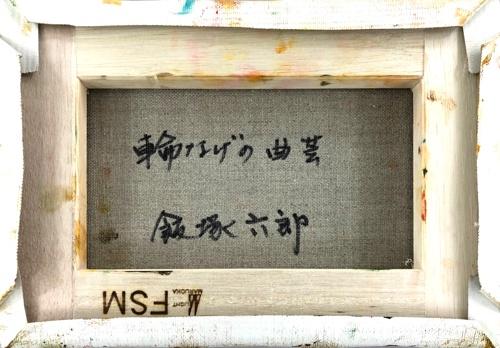 輪なげの曲芸
飯塚六郎
FSM
LIGHT
MARUOKA